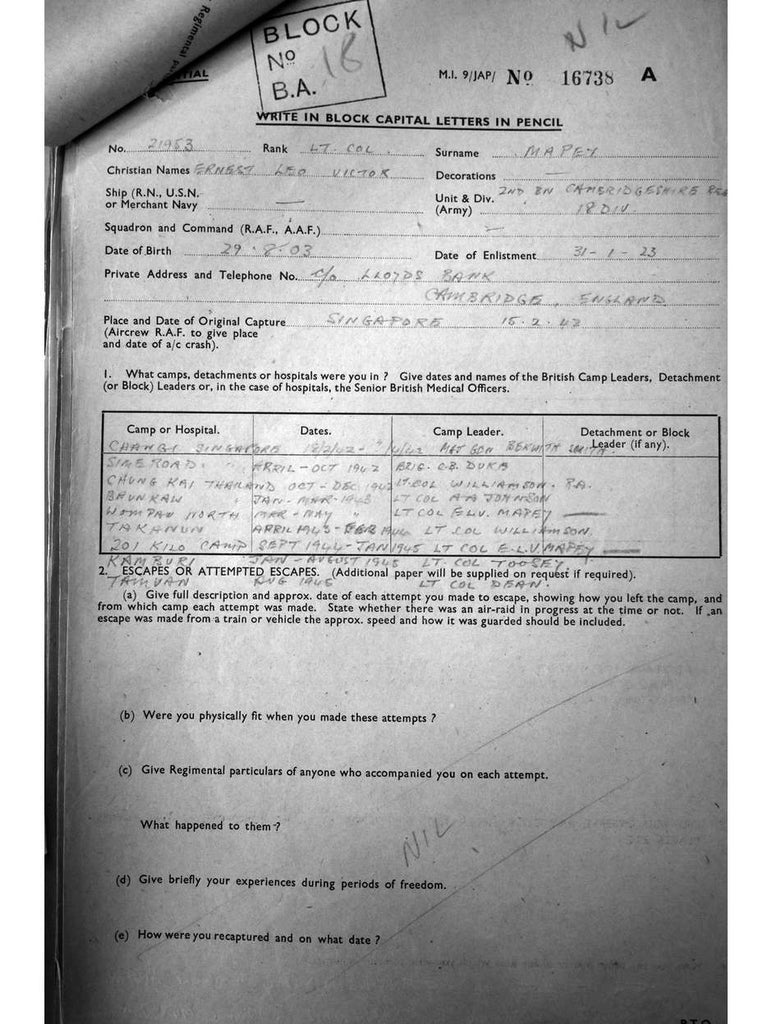 Regimental
BLOCK
No 18
B.A.
NIL
TIAL
M.I. 9/JAP/ No 16738 A
WRITE IN BLOCK CAPITAL LETTERS IN PENCIL
No. 21953 Rank LT COL. Surname MAPEY
Christian Names ERNEST LEO VICTOR Decorations —
Ship (R.N., U.S.N. or Merchant Navy —
Unit & Div. (Army) 2ND BN CAMBRIDGESHIRE REG
18 DIV.
Squadron and Command (R.A.F., A.A.F.) —
Date of Birth 29.8.03 Date of Enlistment 31-1-23
Private Address and Telephone No. C/O LLOYDS BANK
CAMBRIDGE, ENGLAND
Place and Date of Original Capture SINGAPORE 15.2.42
(Aircrew R.A.F. to give place
and date of a/c crash).
1. What camps, detachments or hospitals were you in ? Give dates and names of the British Camp Leaders, Detachment
(or Block) Leaders or, in the case of hospitals, the Senior British Medical Officers.
Camp or Hospital. Dates. Camp Leader. Detachment or Block
Leader (if any).
CHANGI SINGAPORE MAJ GEN BEKWITH SMITH
SIME ROAD " " APRIL - OCT 1942 BRIG. C.B. DUKE
CHUNG KAI THAILAND OCT - DEC 1942 LT. COL WILLIAMSON. R.A.
BAUNKAU " JAN - MAR - 1943 LT COL A A JOHNSON
WOMPAU NORTH MAR - MAY LT COL E.L.V. MAPEY —
TAKANUN APRIL 1943 - FEB LT COL WILLIAMSON.
201 KILO CAMP SEPT 1944 - JAN 1945 LT COL E.L.V MAPEY —
KAMBURI JAN - AUGUST 1945 LT. COL TOOSEY
TAMUAN AUG 1945 LT COL DEAN.
2. ESCAPES OR ATTEMPTED ESCAPES. (Additional paper will be supplied on request if required).
(a) Give full description and approx. date of each attempt you made to escape, showing how you left the camp, and
from which camp each attempt was made. State whether there was an air-raid in progress at the time or not. If an
escape was made from a train or vehicle the approx. speed and how it was guarded should be included.
(b) Were you physically fit when you made these attempts ?
(c) Give Regimental particulars of anyone who accompanied you on each attempt.
What happened to them ?
NIL
(d) Give briefly your experiences during periods of freedom.
(e) How were you recaptured and on what date ?
P.T.O.